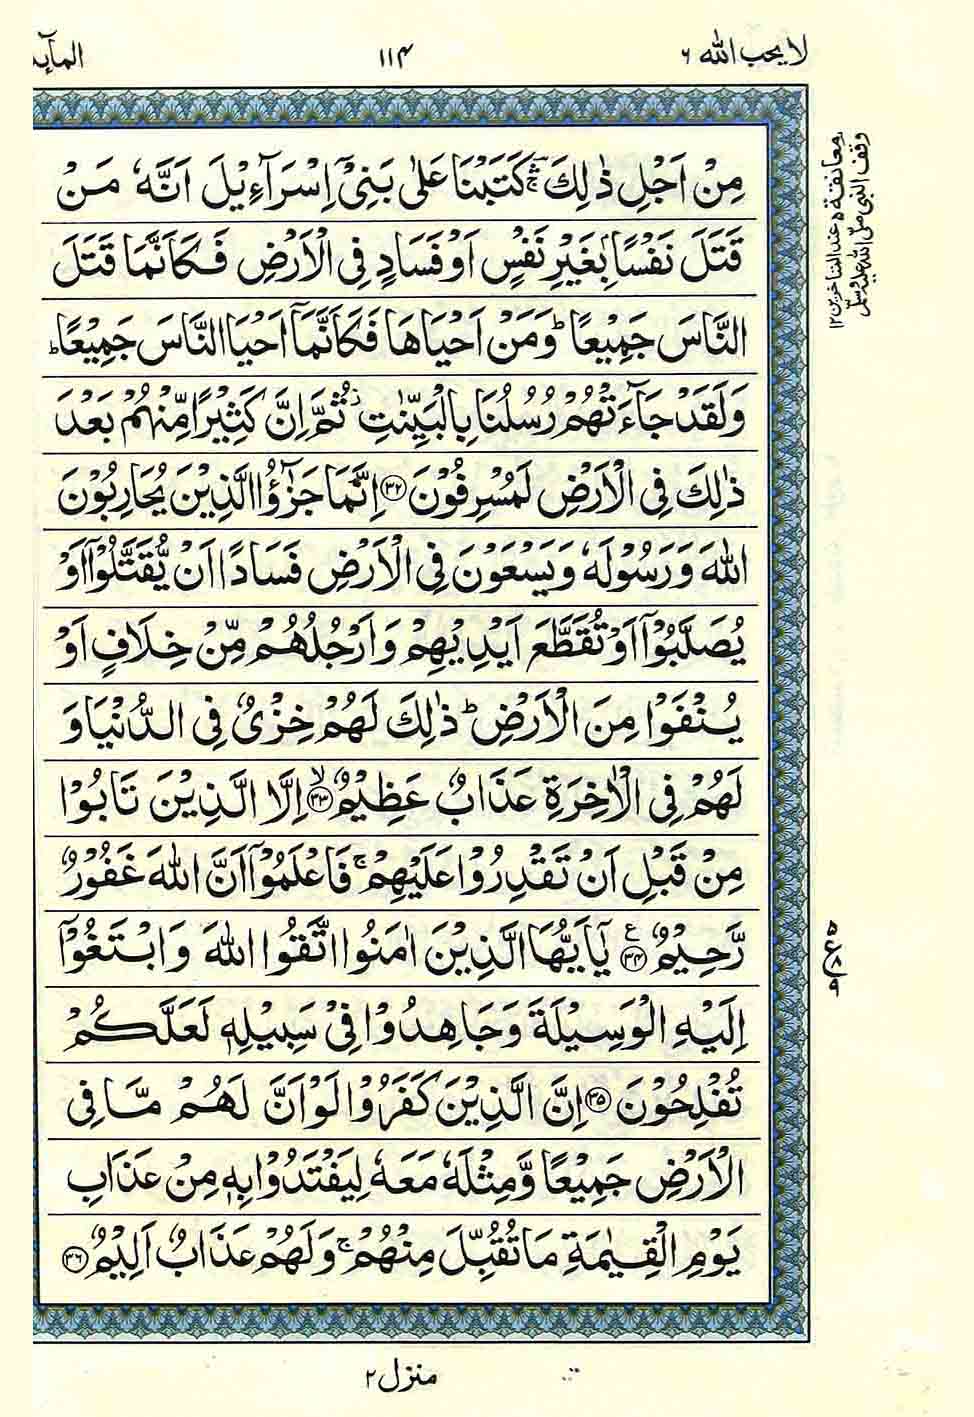 لا یحب الله ٦
١١٤
المآىد
مِنْ اَجْلِ ذٰلِكَ ۛۚ كَتَبْنَا عَلٰى بَنِیْۤ اِسْرَآءِیْلَ اَنَّهٗ مَنْ
قَتَلَ نَفْسًۢا بِغَیْرِ نَفْسٍ اَوْ فَسَادٍ فِی الْاَرْضِ فَكَاَنَّمَا قَتَلَ
النَّاسَ جَمِیْعًا ؕ وَ مَنْ اَحْیَاهَا فَكَاَنَّمَاۤ اَحْیَا النَّاسَ جَمِیْعًا ؕ
وَ لَقَدْ جَآءَتْهُمْ رُسُلُنَا بِالْبَیِّنٰتِ ؗ ثُمَّ اِنَّ كَثِیْرًا مِّنْهُمْ بَعْدَ
ذٰلِكَ فِی الْاَرْضِ لَمُسْرِفُوْنَ ﴿۳۲﴾ اِنَّمَا جَزٰٓؤُا الَّذِیْنَ یُحَارِبُوْنَ
اللّٰهَ وَ رَسُوْلَهٗ وَ یَسْعَوْنَ فِی الْاَرْضِ فَسَادًا اَنْ یُّقَتَّلُوْۤا اَوْ
یُصَلَّبُوْۤا اَوْ تُقَطَّعَ اَیْدِیْهِمْ وَ اَرْجُلُهُمْ مِّنْ خِلَافٍ اَوْ
یُنْفَوْا مِنَ الْاَرْضِ ؕ ذٰلِكَ لَهُمْ خِزْیٌ فِی الدُّنْیَا وَ
لَهُمْ فِی الْاٰخِرَةِ عَذَابٌ عَظِیْمٌ ﴿۳۳﴾ۙ اِلَّا الَّذِیْنَ تَابُوْا
مِنْ قَبْلِ اَنْ تَقْدِرُوْا عَلَیْهِمْ ۚ فَاعْلَمُوْۤا اَنَّ اللّٰهَ غَفُوْرٌ
رَّحِیْمٌ ﴿۳۴﴾ع یٰۤاَیُّهَا الَّذِیْنَ اٰمَنُوا اتَّقُوا اللّٰهَ وَ ابْتَغُوْۤا
اِلَیْهِ الْوَسِیْلَةَ وَ جَاهِدُوْا فِیْ سَبِیْلِهٖ لَعَلَّكُمْ
تُفْلِحُوْنَ ﴿۳۵﴾ اِنَّ الَّذِیْنَ كَفَرُوْا لَوْ اَنَّ لَهُمْ مَّا فِی
الْاَرْضِ جَمِیْعًا وَّ مِثْلَهٗ مَعَهٗ لِیَفْتَدُوْا بِهٖ مِنْ عَذَابِ
یَوْمِ الْقِیٰمَةِ مَا تُقُبِّلَ مِنْهُمْ ۚ وَ لَهُمْ عَذَابٌ اَلِیْمٌ ﴿۳۶﴾
وقف النبی صلی الله علیه وسلم
معانقة ٥ عند المتاخرین ١٢
منزل ٢